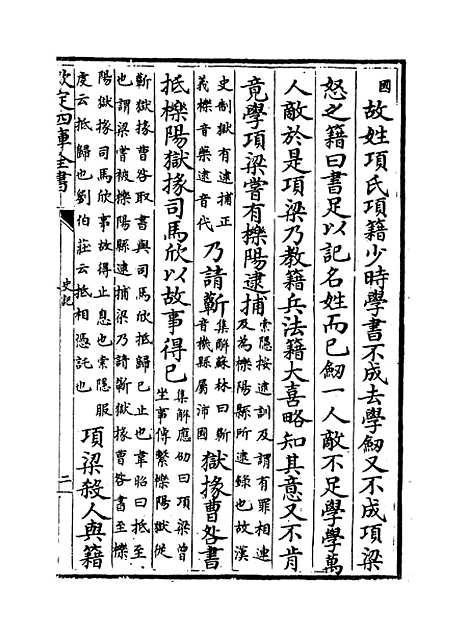 國 故姓項氏項籍少時學書不成去學劒又不成項梁
怒之籍曰書足以記名姓而已劒一人敵不足學學萬
人敵於是項梁乃教籍兵法籍大喜略知其意又不肯
竟學項梁嘗有櫟陽逮捕
索隱按逮訓及謂有罪相連
及為櫟陽縣所逮錄也故漢
史制獄有逮捕正
義櫟音藥逮音代
乃請蘄
集解蘇林曰蘄
音機縣屬沛國
獄掾曹咎書
抵櫟陽獄掾司馬欣以故事得已
集解應劭曰項梁曾
坐事傳繫櫟陽獄從
蘄獄掾曹咎取書與司馬欣抵歸已止也韋昭曰抵至
也謂梁嘗被櫟陽縣逮捕梁乃請蘄獄掾曹咎書至櫟
陽獄掾司馬欣事故得止息也索隱服
度云抵歸也劉伯莊云抵相憑託也
項梁殺人與籍
欽定四庫全書
史記
二